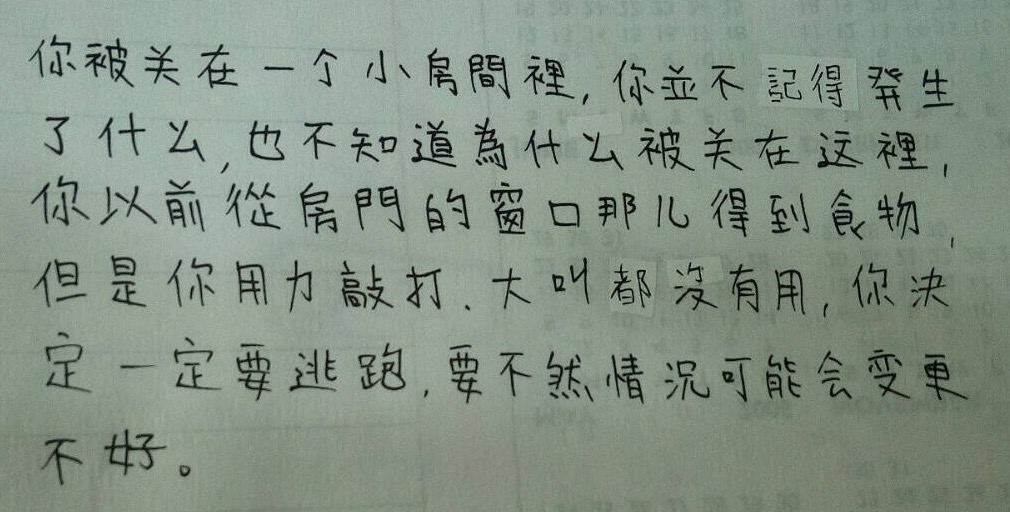 你被关在一个小房間裡, 你並不記得發生
了什么, 也不知道為什么被关在这裡,
你以前從房門的窗口那儿得到食物,
但是你用力敲打、大叫都沒有用, 你決
定一定要逃跑, 要不然情況可能会变更
不好。